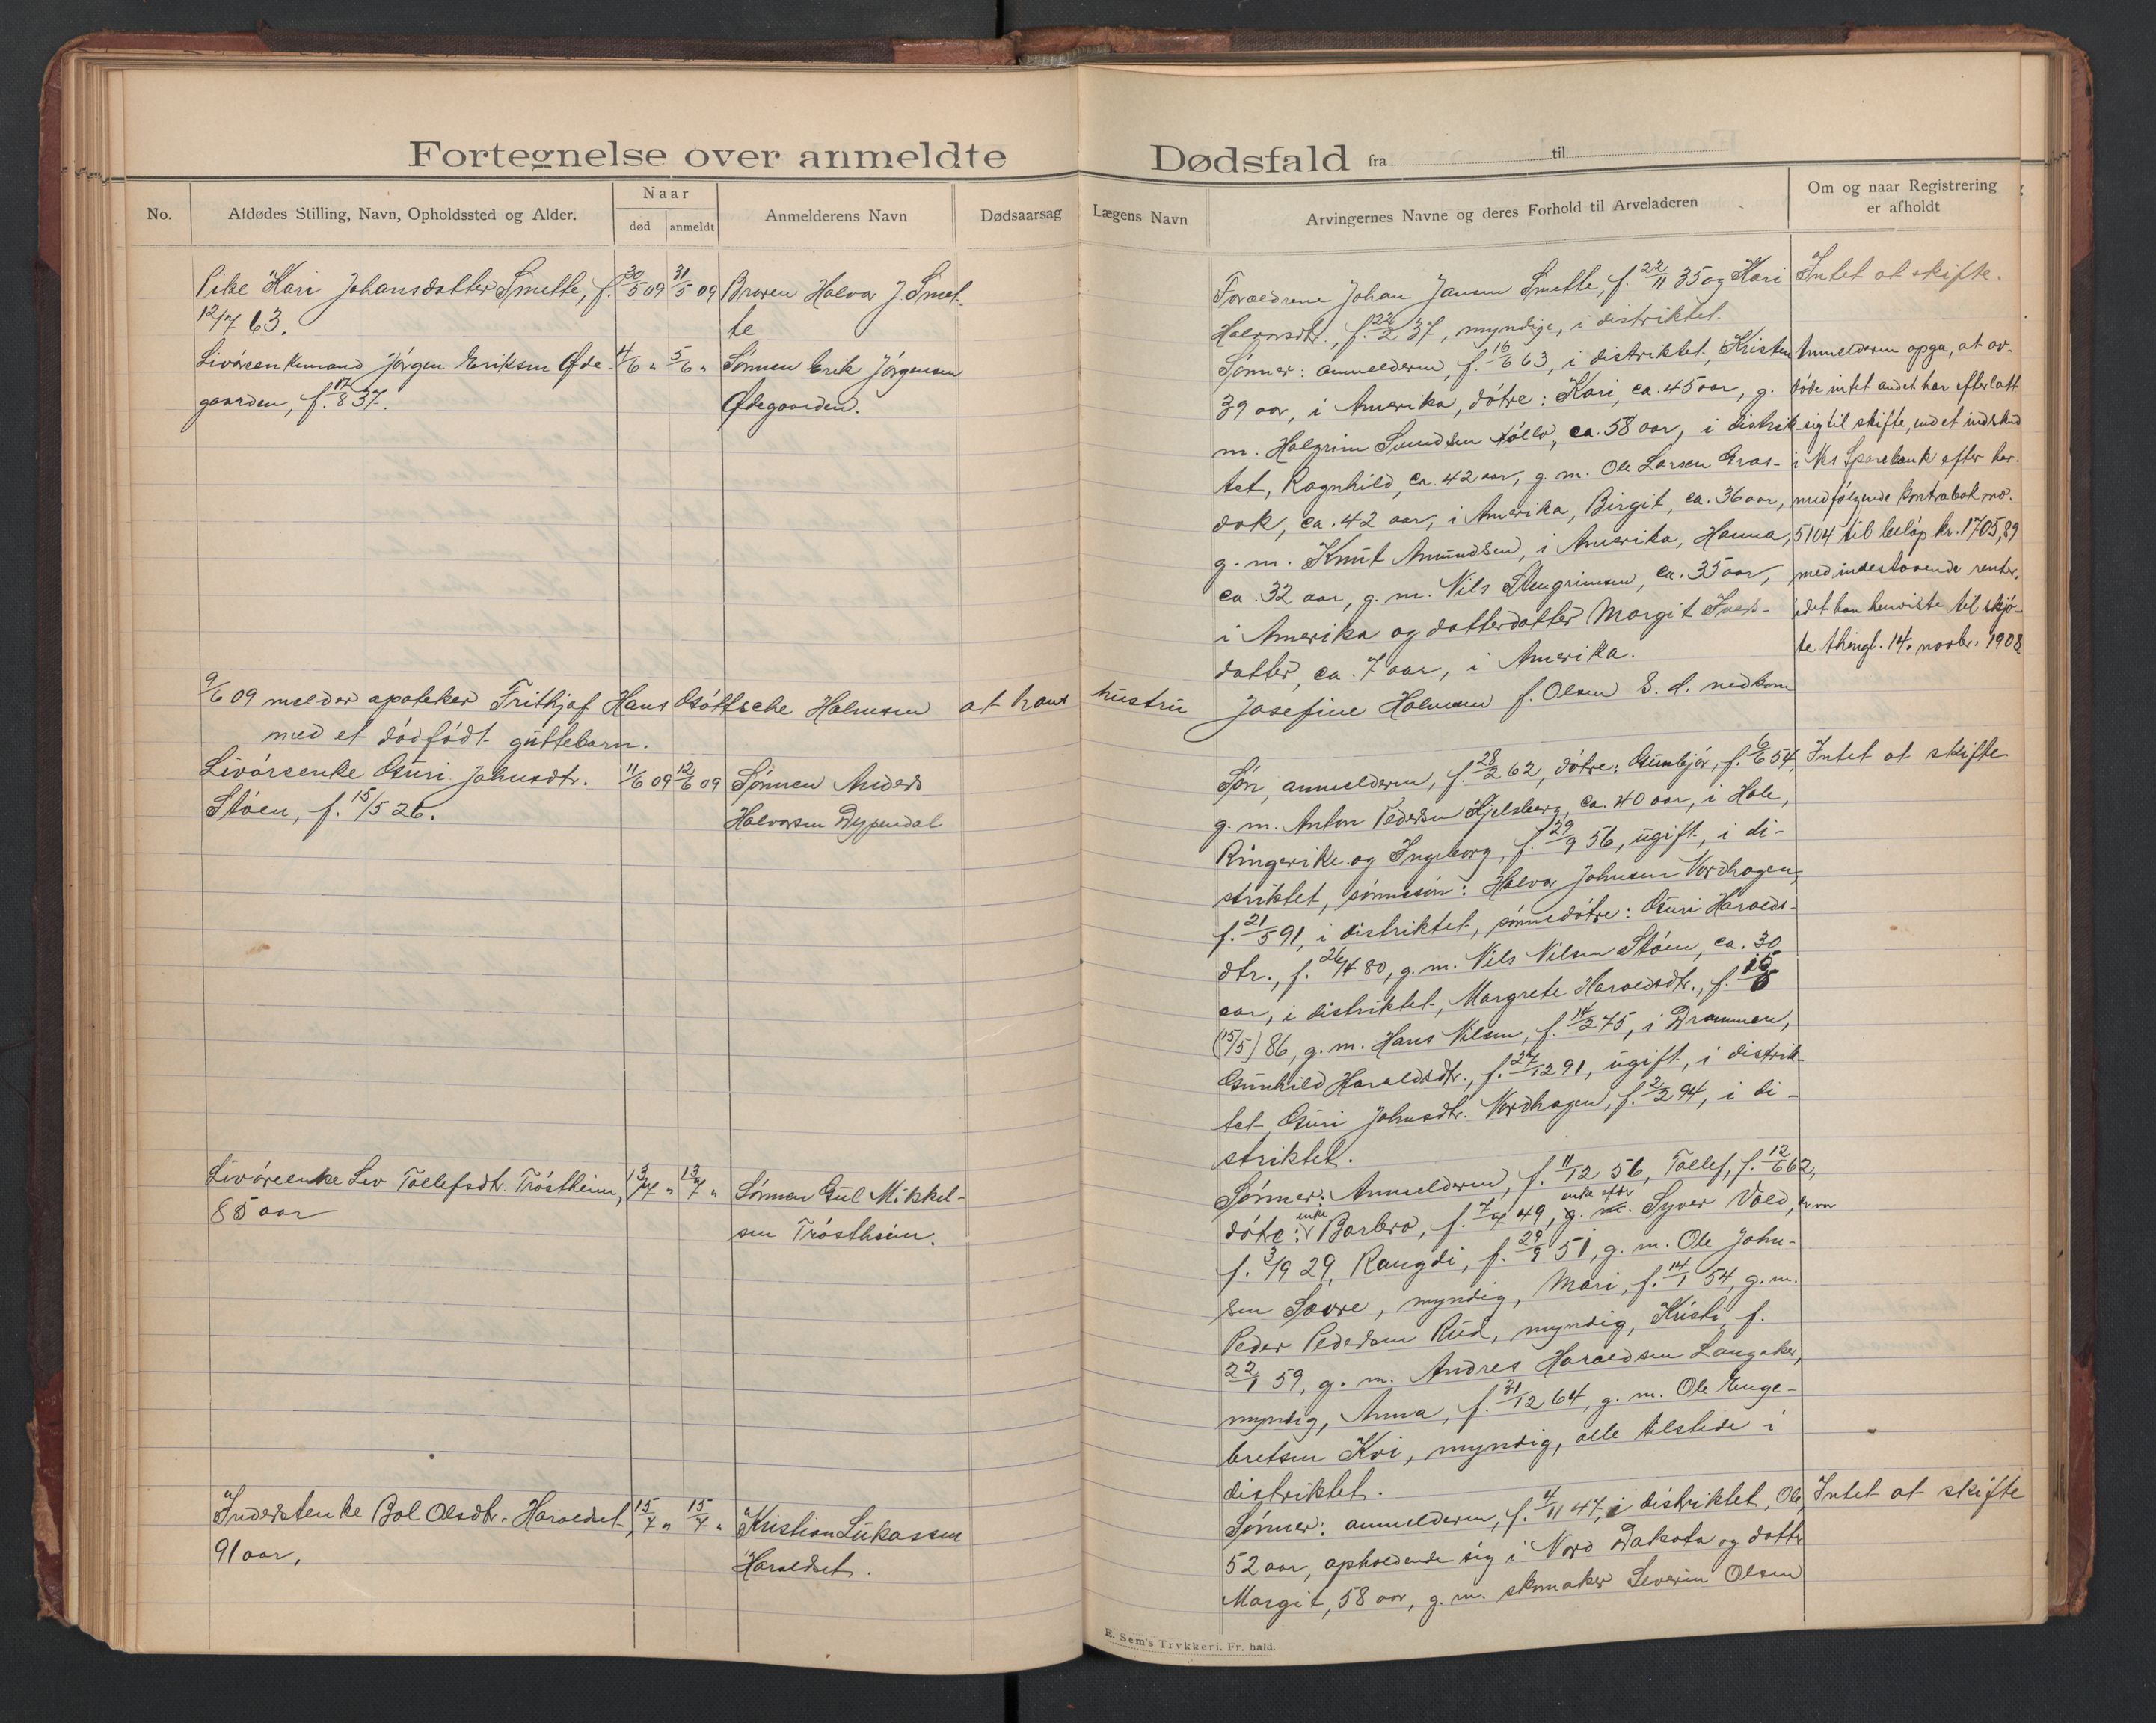 Fortegnelse over anmeldte Dødsfald fra til
No.
Afdødes Stilling, Navn, Opholdssted og Alder.
Naar
død
anmeldt
Anmelderens Navn
Dødsaarsag
Lægens Navn
Arvingernes Navne og deres Forhold til Arveladeren
Om og naar Registrering
er afholdt
Pike Kari Johansdatter Smette, f.
12/7 63.
30/5 09
31/5 09
Broren Halvor J. Smet-
te
Foræeldrene Johan Jansen Smette, f. 22/11 35 og Kari
Halvorsdtr., f. 22/2 37, myndige, i distriktet.
Intet at skifte.
Livörsenkemand Jörgen Eriksen Öde-
gaarden, f. 17/8 37.
4/6 "
5/6 "
Sönnen Erik Jörgensen
Ödegaarden.
Sönner: anmelderen, f. 16/6 63, i distriktet, Kristen
39 aar, i Amerika, dötre: Kari, ca. 45 aar, g.
m. Halgrim Svendsen Nöllo, ca. 58 aar, i distrik-
tet, Ragnhild, ca. 42 aar, g. m. Ole Larsen Gras-
dok, ca. 42 aar, i Amerika, Birgit, ca. 36 aar,
g. m. Knut Amundsen, i Amerika, Hanna,
ca. 32 aar, g. m. Nils Stengrimsen, ca. 35 aar,
i Amerika og datterdatter Margit Ivers-
datter, ca. 7 aar, i Amerika.
Anmelderen opga, at av-
döde intet andet har efterlatt
sig til skifte, end et indskud
i Nes Sparebank efter her-
medfölgende kontrabok no.
5104 til belöp kr. 1705,89
med indestaaende renter,
idet han henviste til skjö-
te thingl. 14. novbr. 1908.
9/6 09 melder apoteker Frithjof Hans Göttsche Halvorsen at hans hustru Josefine Halvorsen f. Olsen s. d. nedkom
med et dödfödt guttebarn.
Livörsenke Guri Johnsdtr.
Stöen, f. 15/5 26.
11/6 09
12/6 09
Sönnen Anders
Halvorsen Dypendal
Sön, anmelderen, f. 28/2 62, dötre: Gunbjör, f. 6/6 54,
g. m. Anton Pedersen Hjelsberg, ca. 40 aar, i Hole,
Ringerike og Ingeborg, f. 29/9 56, ugift, i di-
striktet, sönnesön: Halvor Johnsen Nordhagen,
f. 21/5 91, i distriktet, sönnedötre: Guri Haralds-
dtr., f. 26/4 80, g. m. Nils Nilsen Stöen, ca. 30
aar, i distriktet, Margrete Haraldsdtr., f. 15/5
(15/5) 86, g. m. Hans Nilsen, f. 14/2 75, i Drammen,
Gunhild Haraldsdtr., f. 27/12 91, ugift, i distrik-
tet, Guri Johnsdtr. Nordhagen, f. 2/2 94, i di-
striktet.
Intet at skifte
Livöreenke Liv Tollefsdtr. Tröstheim,
85 aar
13/7 "
13/7 "
Sönnen Gul Mikkel-
sen Tröstheim.
Sönner: Anmelderen, f. 11/12 56, Tollef, f. 12/6 62,
dötre: enke Barbro, f. 7/4 49, g. m. enke efter Syver Vold,
f. 3/9 29, Rangdi, f. 29/9 51, g. m. Ole John-
sen Sævre, myndig, Mari, f. 14/1 54, g. m.
Peder Pedersen Rud, myndig, Kristi, f.
22/1 59, g. m. Andres Haraldsen Langaker,
myndig, Anna, f. 31/12 64, g. m. Ole Enge-
bretsen Kvi, myndig, alle tilstede i
distriktet.
Inderstenke Bol Olsdtr. Haraldset,
91 aar,
15/7 "
15/7 "
Kristian Lukassen
Haraldset.
Sönner: anmelderen, f. 4/11 47, i distriktet, Ole,
52 aar, opholdende sig i Nord Dakota og datter
Margit, 58 aar, g. m. skomaker Severin Olsen
Intet at skifte
E. Sem's Trykkeri, Fr.hald.